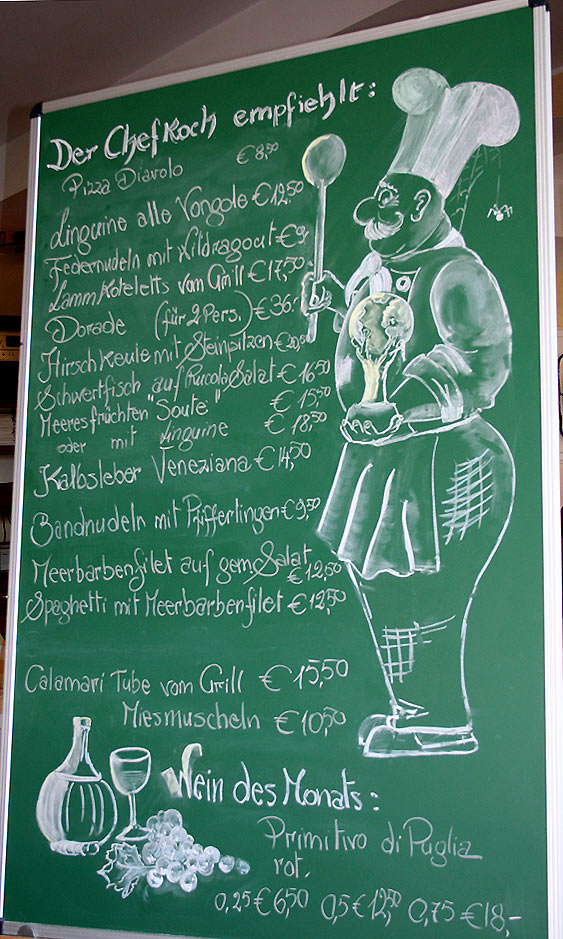 Der Chefkoch empfiehlt:
Pizza Diavolo €8,50
Linguine alle Vongole €12,50
Federnudeln mit Wildragout €9,-
Lamm Koteletts vom Grill €17,50
Dorade (für 2 Pers.) €36.-
Hirschkeule mit Steinpilzen €20,50
Schwertfisch auf RucolaSalat €16,50
Meeresfrüchten "Soute" €15,50
oder mit Linguine €18,50
Kalbsleber Veneziana €14,50
Bandnudeln mit Pfifferlingen €9,50
Meerbarbenfilet auf gem. Salat €12,50
Spaghetti mit Meerbarbenfilet €12,50
Calamari Tube vom Grill €15,50
Miesmuscheln €10,50
Wein des Monats:
Primitivo di Puglia
rot.
0,25 €6,50 0,5 €12,50 0,75 €18,-